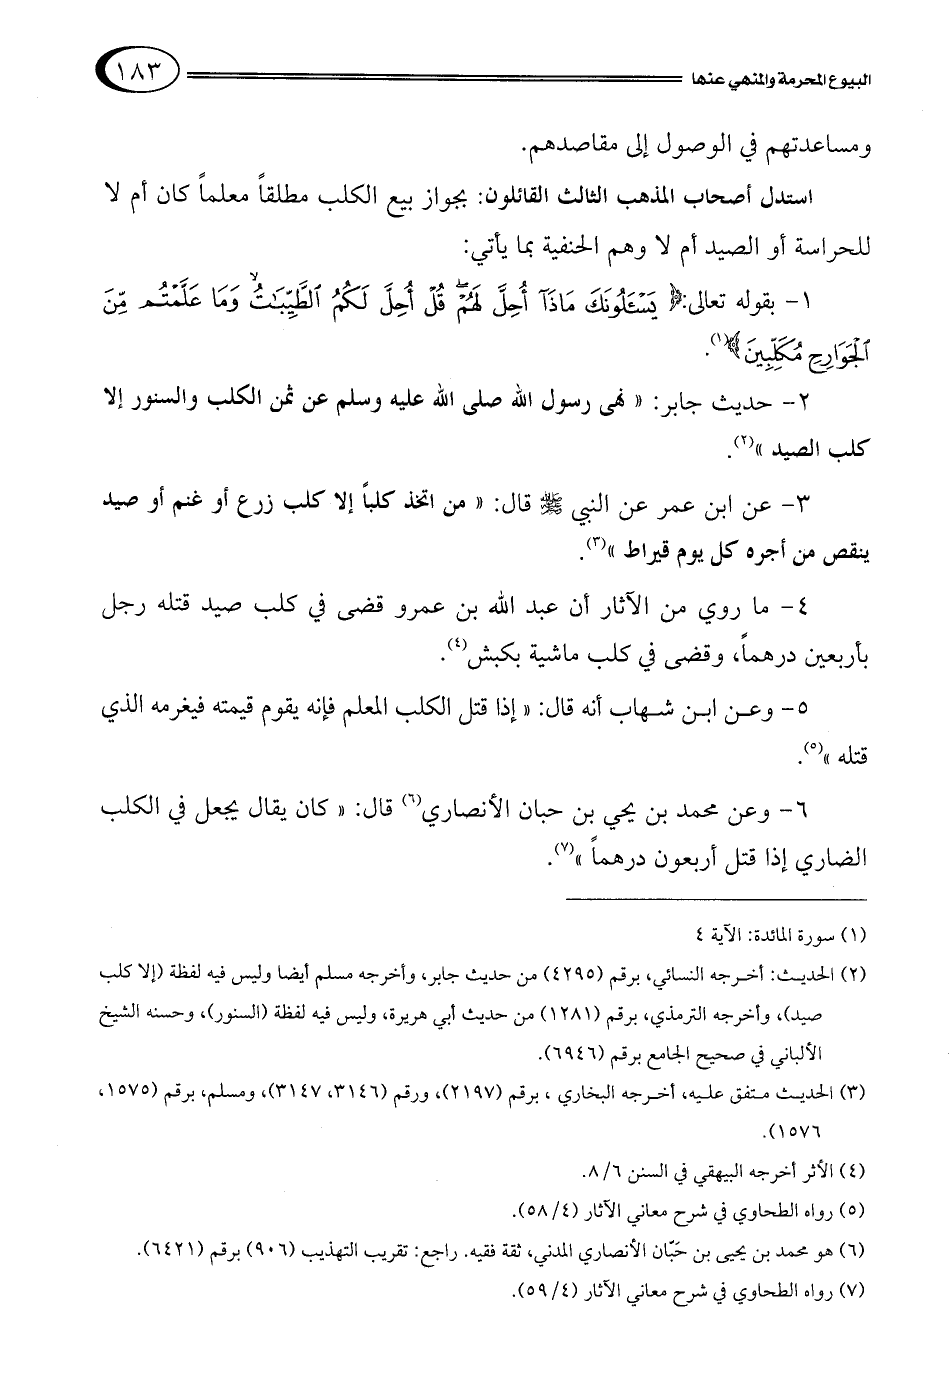 البيوع المحرمة والمنهي عنها ١٨٣
ومساعدتهم في الوصول إلى مقاصدهم.
استدل أصحاب المذهب الثالث القائلون: بجواز بيع الكلب مطلقاً معلماً كان أم لا
للحراسة أو الصيد أم لا وهم الحنفية بما يأتي:
١- بقوله تعالى: ﴿ يَسْـَٔلُونَكَ مَاذَآ أُحِلَّ لَهُمْ ۖ قُلْ أُحِلَّ لَكُمُ ٱلطَّيِّبَـٰتُ ۙ وَمَا عَلَّمْتُم مِّنَ
ٱلْجَوَارِحِ مُكَلِّبِينَ ﴾(١).
٢- حديث جابر: « نهى رسول الله صلى الله عليه وسلم عن ثمن الكلب والسنور إلا
كلب الصيد »(٢).
٣- عن ابن عمر عن النبي ﷺ قال: « من اتخذ كلباً إلا كلب زرع أو غنم أو صيد
ينقص من أجره كل يوم قيراط »(٣).
٤- ما روي من الآثار أن عبد الله بن عمرو قضى في كلب صيد قتله رجل
بأربعين درهماً، وقضى في كلب ماشية بكبش(٤).
٥- وعن ابن شهاب أنه قال: « إذا قتل الكلب المعلم فإنه يقوم قيمته فيغرمه الذي
قتله »(٥).
٦- وعن محمد بن يحي بن حبان الأنصاري(٦) قال: « كان يقال يجعل في الكلب
الضاري إذا قتل أربعون درهماً »(٧).
(١) سورة المائدة: الآية ٤
(٢) الحديث: أخرجه النسائي، برقم (٤٢٩٥) من حديث جابر، وأخرجه مسلم أيضا وليس فيه لفظة (إلا كلب
صيد)، وأخرجه الترمذي، برقم (١٢٨١) من حديث أبي هريرة، وليس فيه لفظة (السنور)، وحسنه الشيخ
الألباني في صحيح الجامع برقم (٦٩٤٦).
(٣) الحديث متفق عليه، أخرجه البخاري ، برقم (٢١٩٧)، ورقم (٣١٤٦، ٣١٤٧)، ومسلم، برقم (١٥٧٥،
١٥٧٦).
(٤) الأثر أخرجه البيهقي في السنن ٨/٦.
(٥) رواه الطحاوي في شرح معاني الآثار (٥٨/٤).
(٦) هو محمد بن يحيى بن حَبّان الأنصاري المدني، ثقة فقيه. راجع: تقريب التهذيب (٩٠٦) برقم (٦٤٢١).
(٧) رواه الطحاوي في شرح معاني الآثار (٥٩/٤).